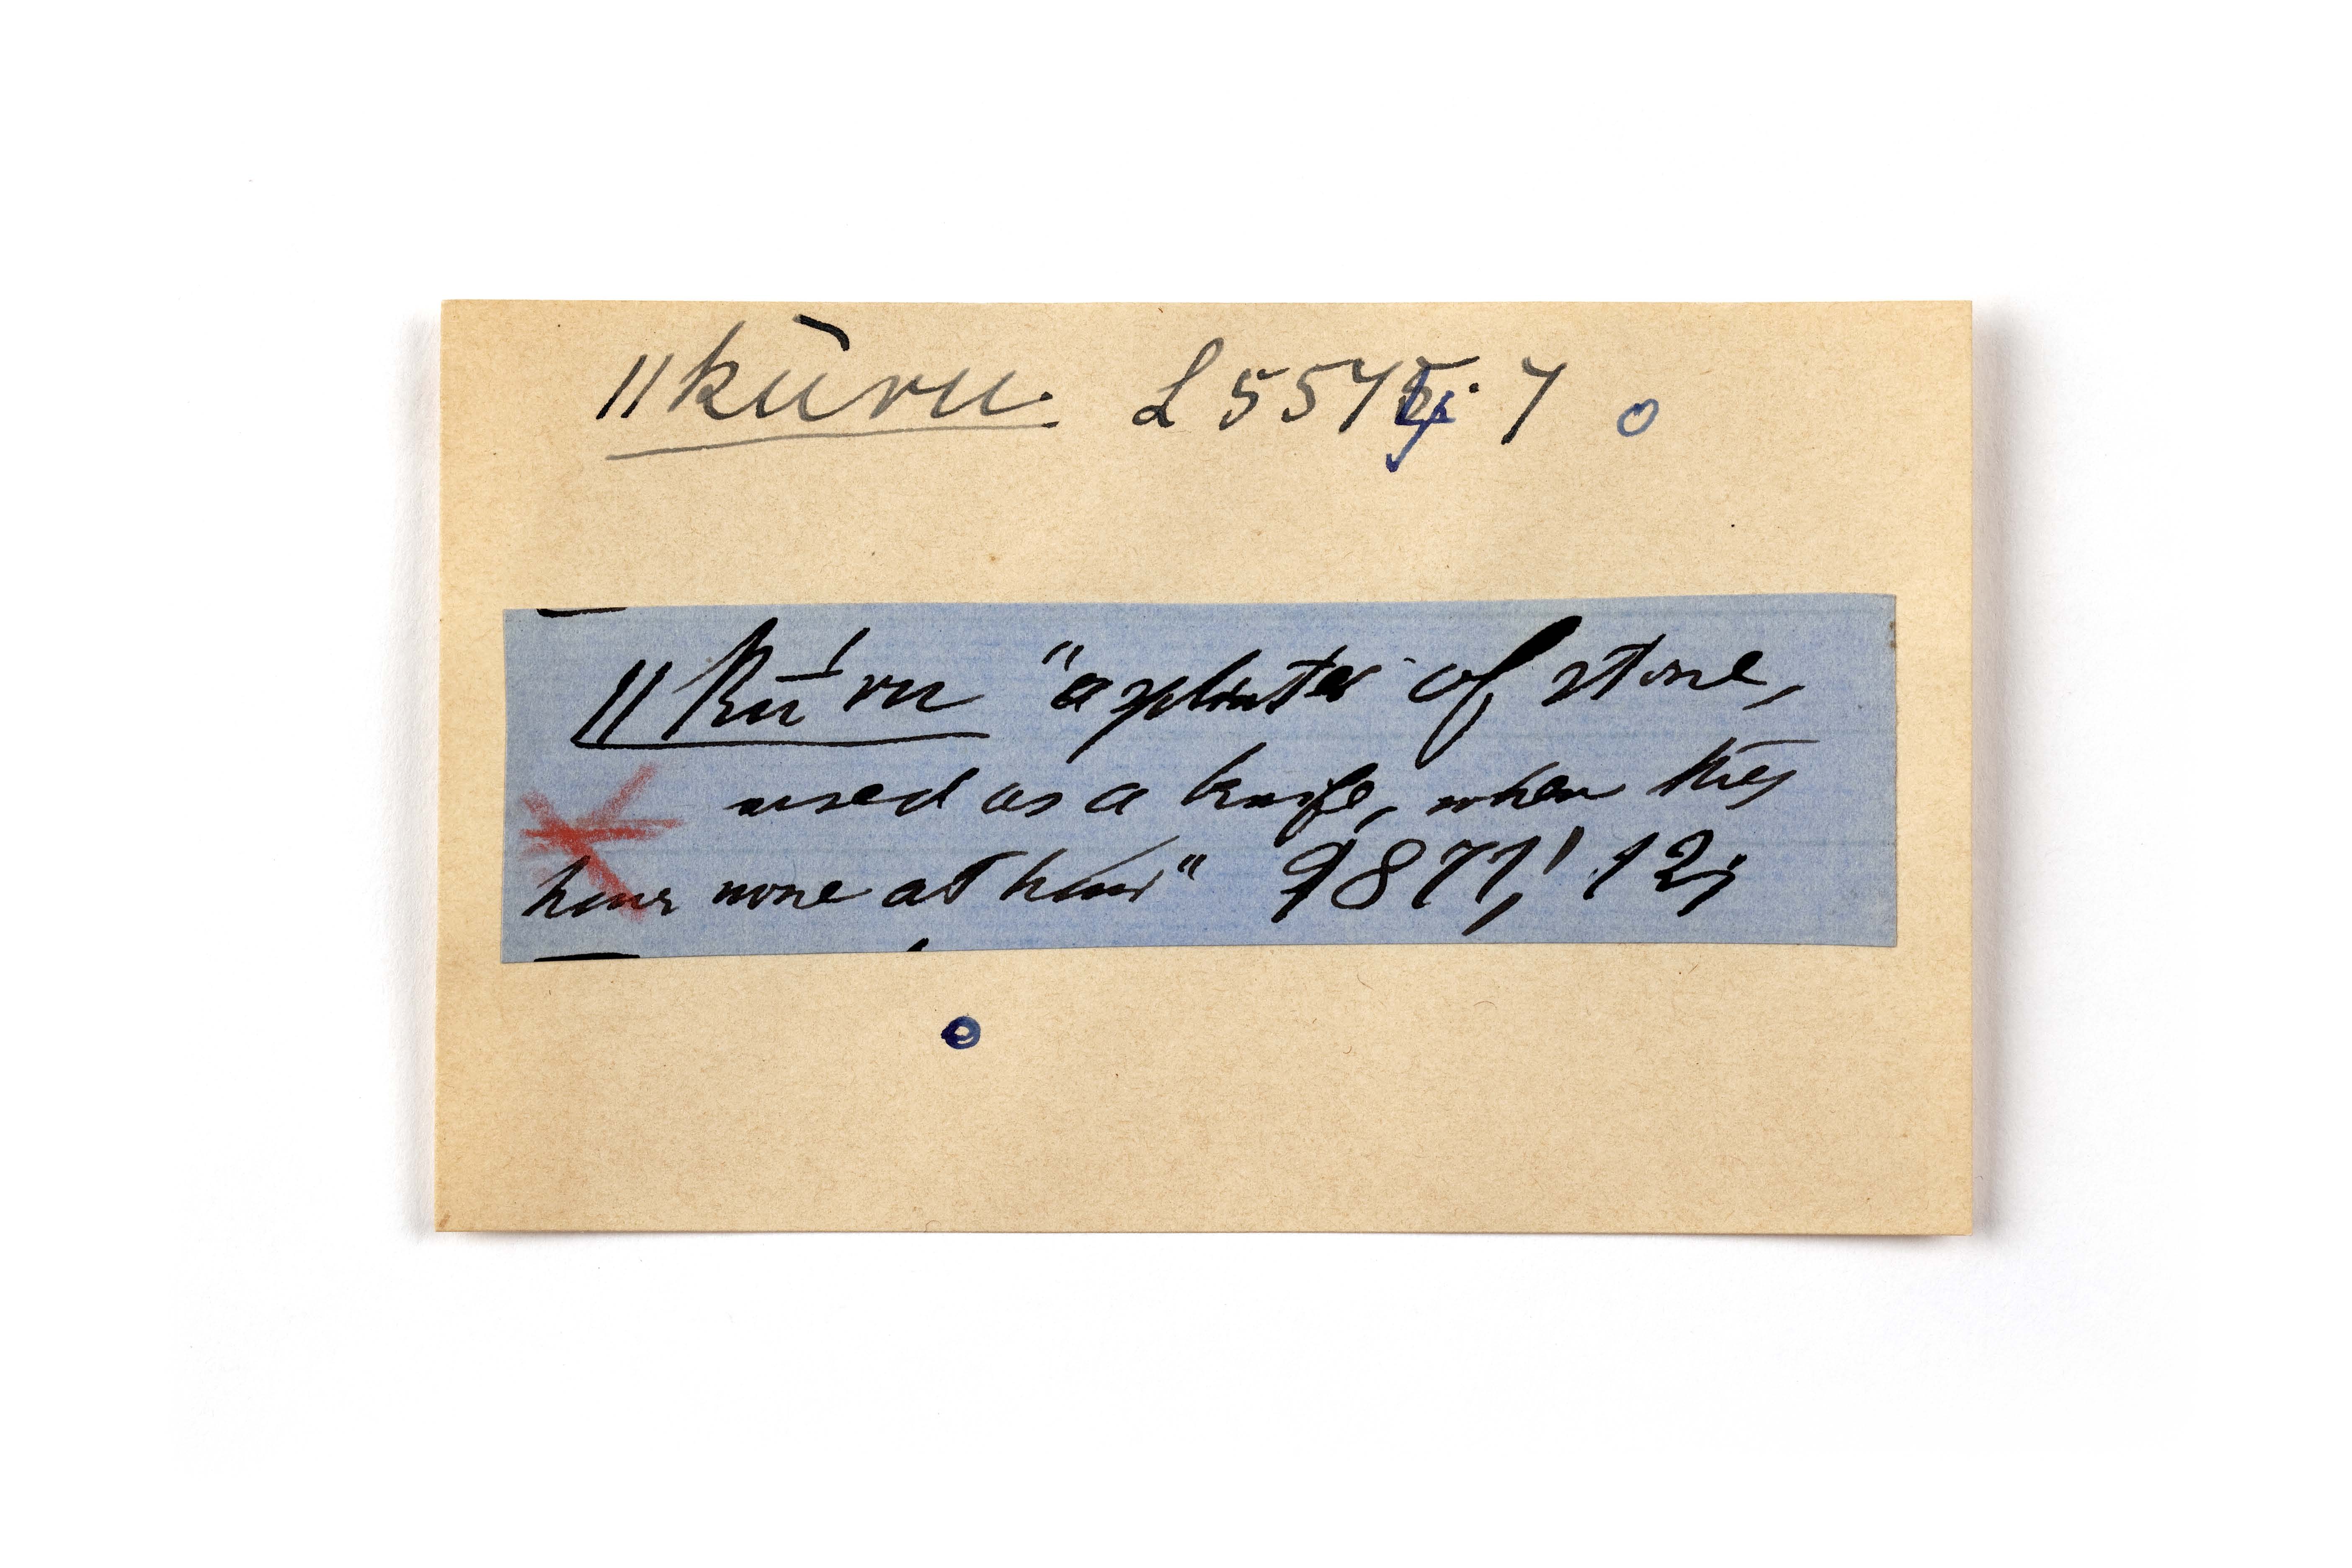 ǁkūru. L 5574. 7 o
ǁkū́ru "a splinter of stone,
used as a knife, when they
have none at hand" 9877,' 12;
o